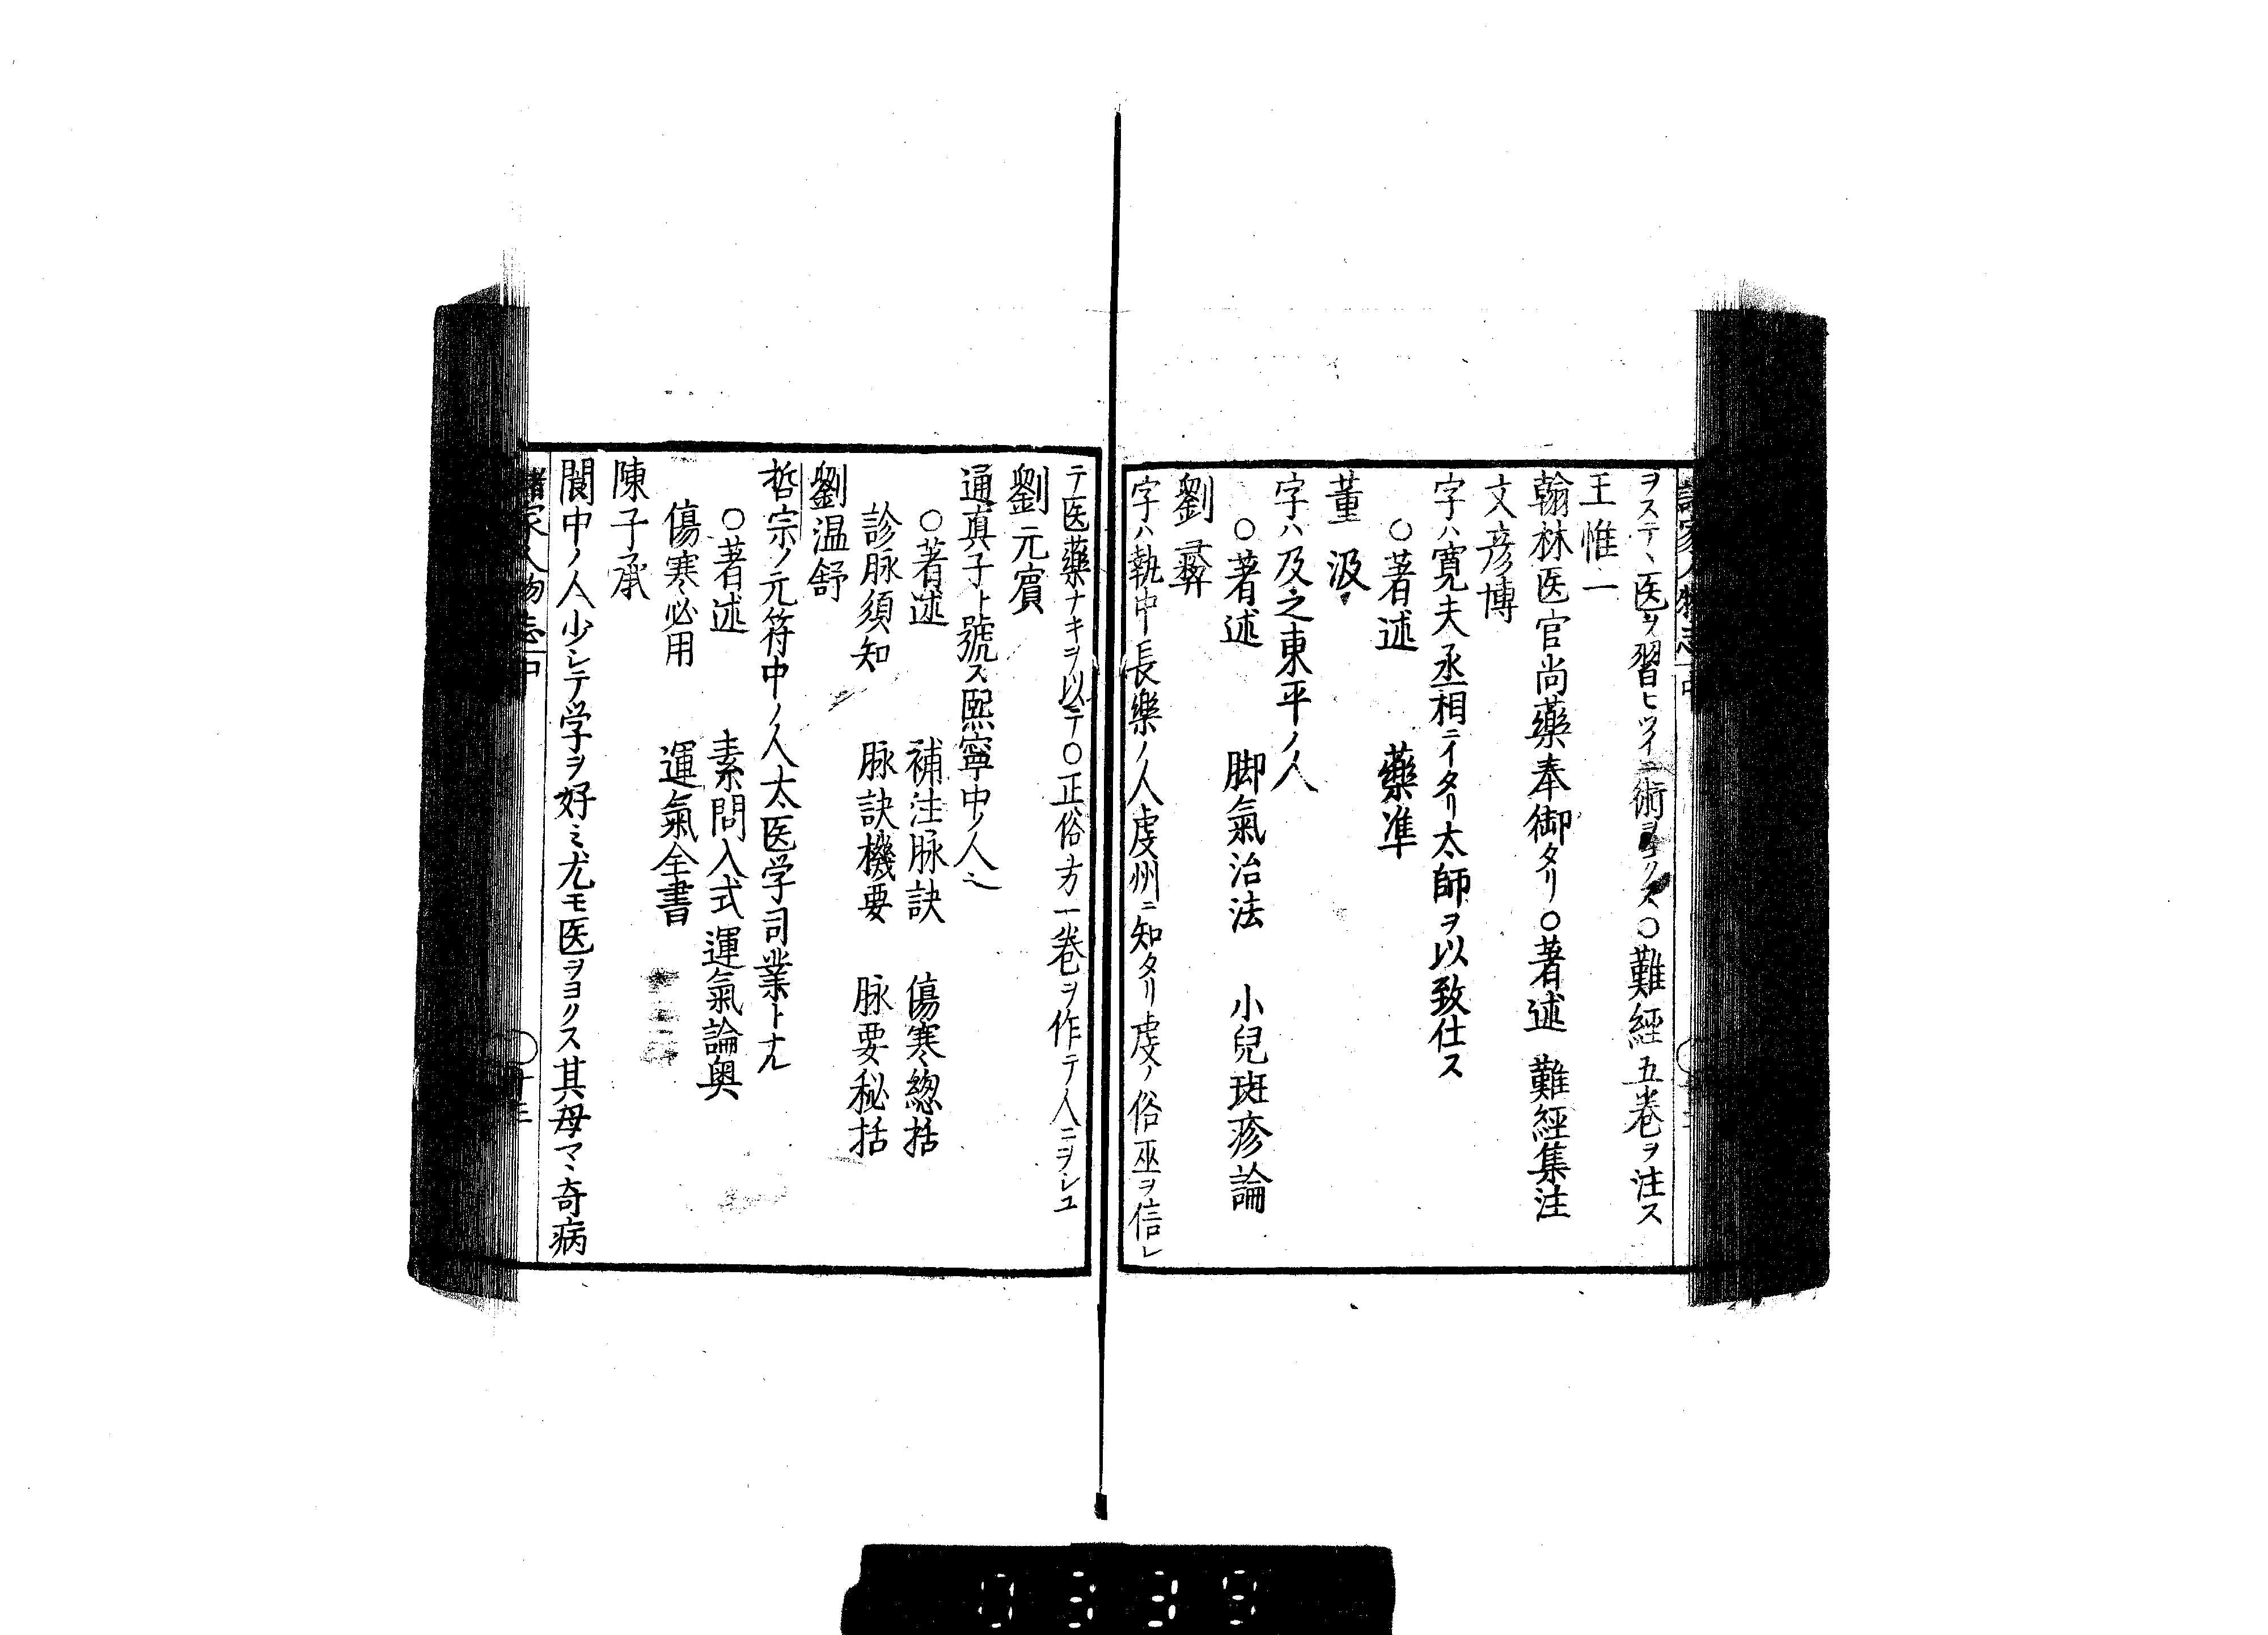 ヲステヽ医ヲ習ヒツイニ術ヲヨクス〇難經五卷ヲ注ス
王惟一
翰林医官尚藥奉御タリ〇著述　難經集注
文彦博
字ハ寛夫丞相ニイタリ太師ヲ以致仕ス
〇著述　藥準
董汲
字ハ及之東平ノ人
〇著述　脚氣治法　小兒斑疹論
劉彛
字ハ執中長樂ノ人虔州ニ知タリ虔ノ俗巫ヲ信シ
テ医藥ナキヲ以テ〇正俗方一卷ヲ作テ人ニヲシユ
劉元賓
通真子ト號ス熈寧中ノ人也
〇著述　補注脉訣　傷寒緫括
診脉須知　脉訣機要　脉要秘括
劉温舒
哲宗ノ元符中ノ人太医学司業トナル
〇著述　素問入式運氣論奥
傷寒必用　運氣全書
陳子承
閬中ノ人少シテ学ヲ好ミ尤モ医ヲヨクス其母マヽ奇病
諸家人物志 中
〇十三
0339